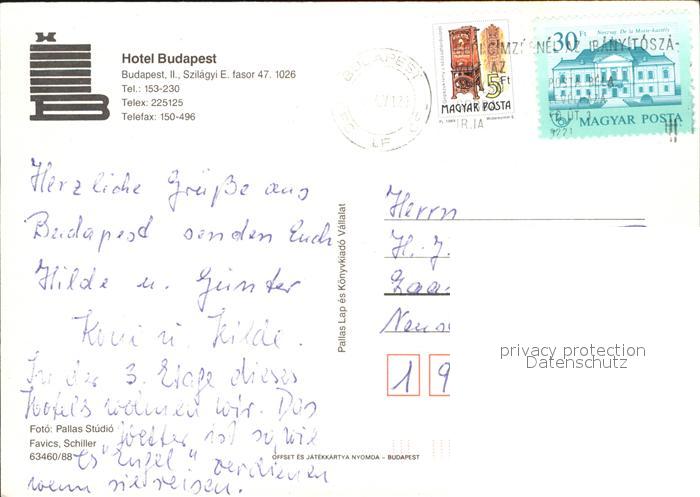 Hotel Budapest
Budapest, II., Szilágyi E. fasor 47. 1026
Tel.: 153-230
Telex: 225125
Telefax: 150-496
BUDAPEST
5 Ft
MAGYAR POSTA
30 Ft
Nagycenk
MAGYAR POSTA
CÍMZÉSNÉL AZ IRÁNYÍTÓSZÁ-
Herzliche Grüße aus
Budapest senden Euch
Hilde u. Günter
u. Hilde.
In der 3. Etage dieses
Hotels wohnen wir. Das
Wetter ist so, wie
es "Engel" verdienen
wenn sie reisen.
Herrn
H. J.
1 9
Pallas Lap és Könyvkiadó Vállalat
Fotó: Pallas Stúdió
Favics, Schiller
63460/88
OFFSET ÉS JÁTÉKKÁRTYA NYOMDA – BUDAPEST
privacy protection
Datenschutz